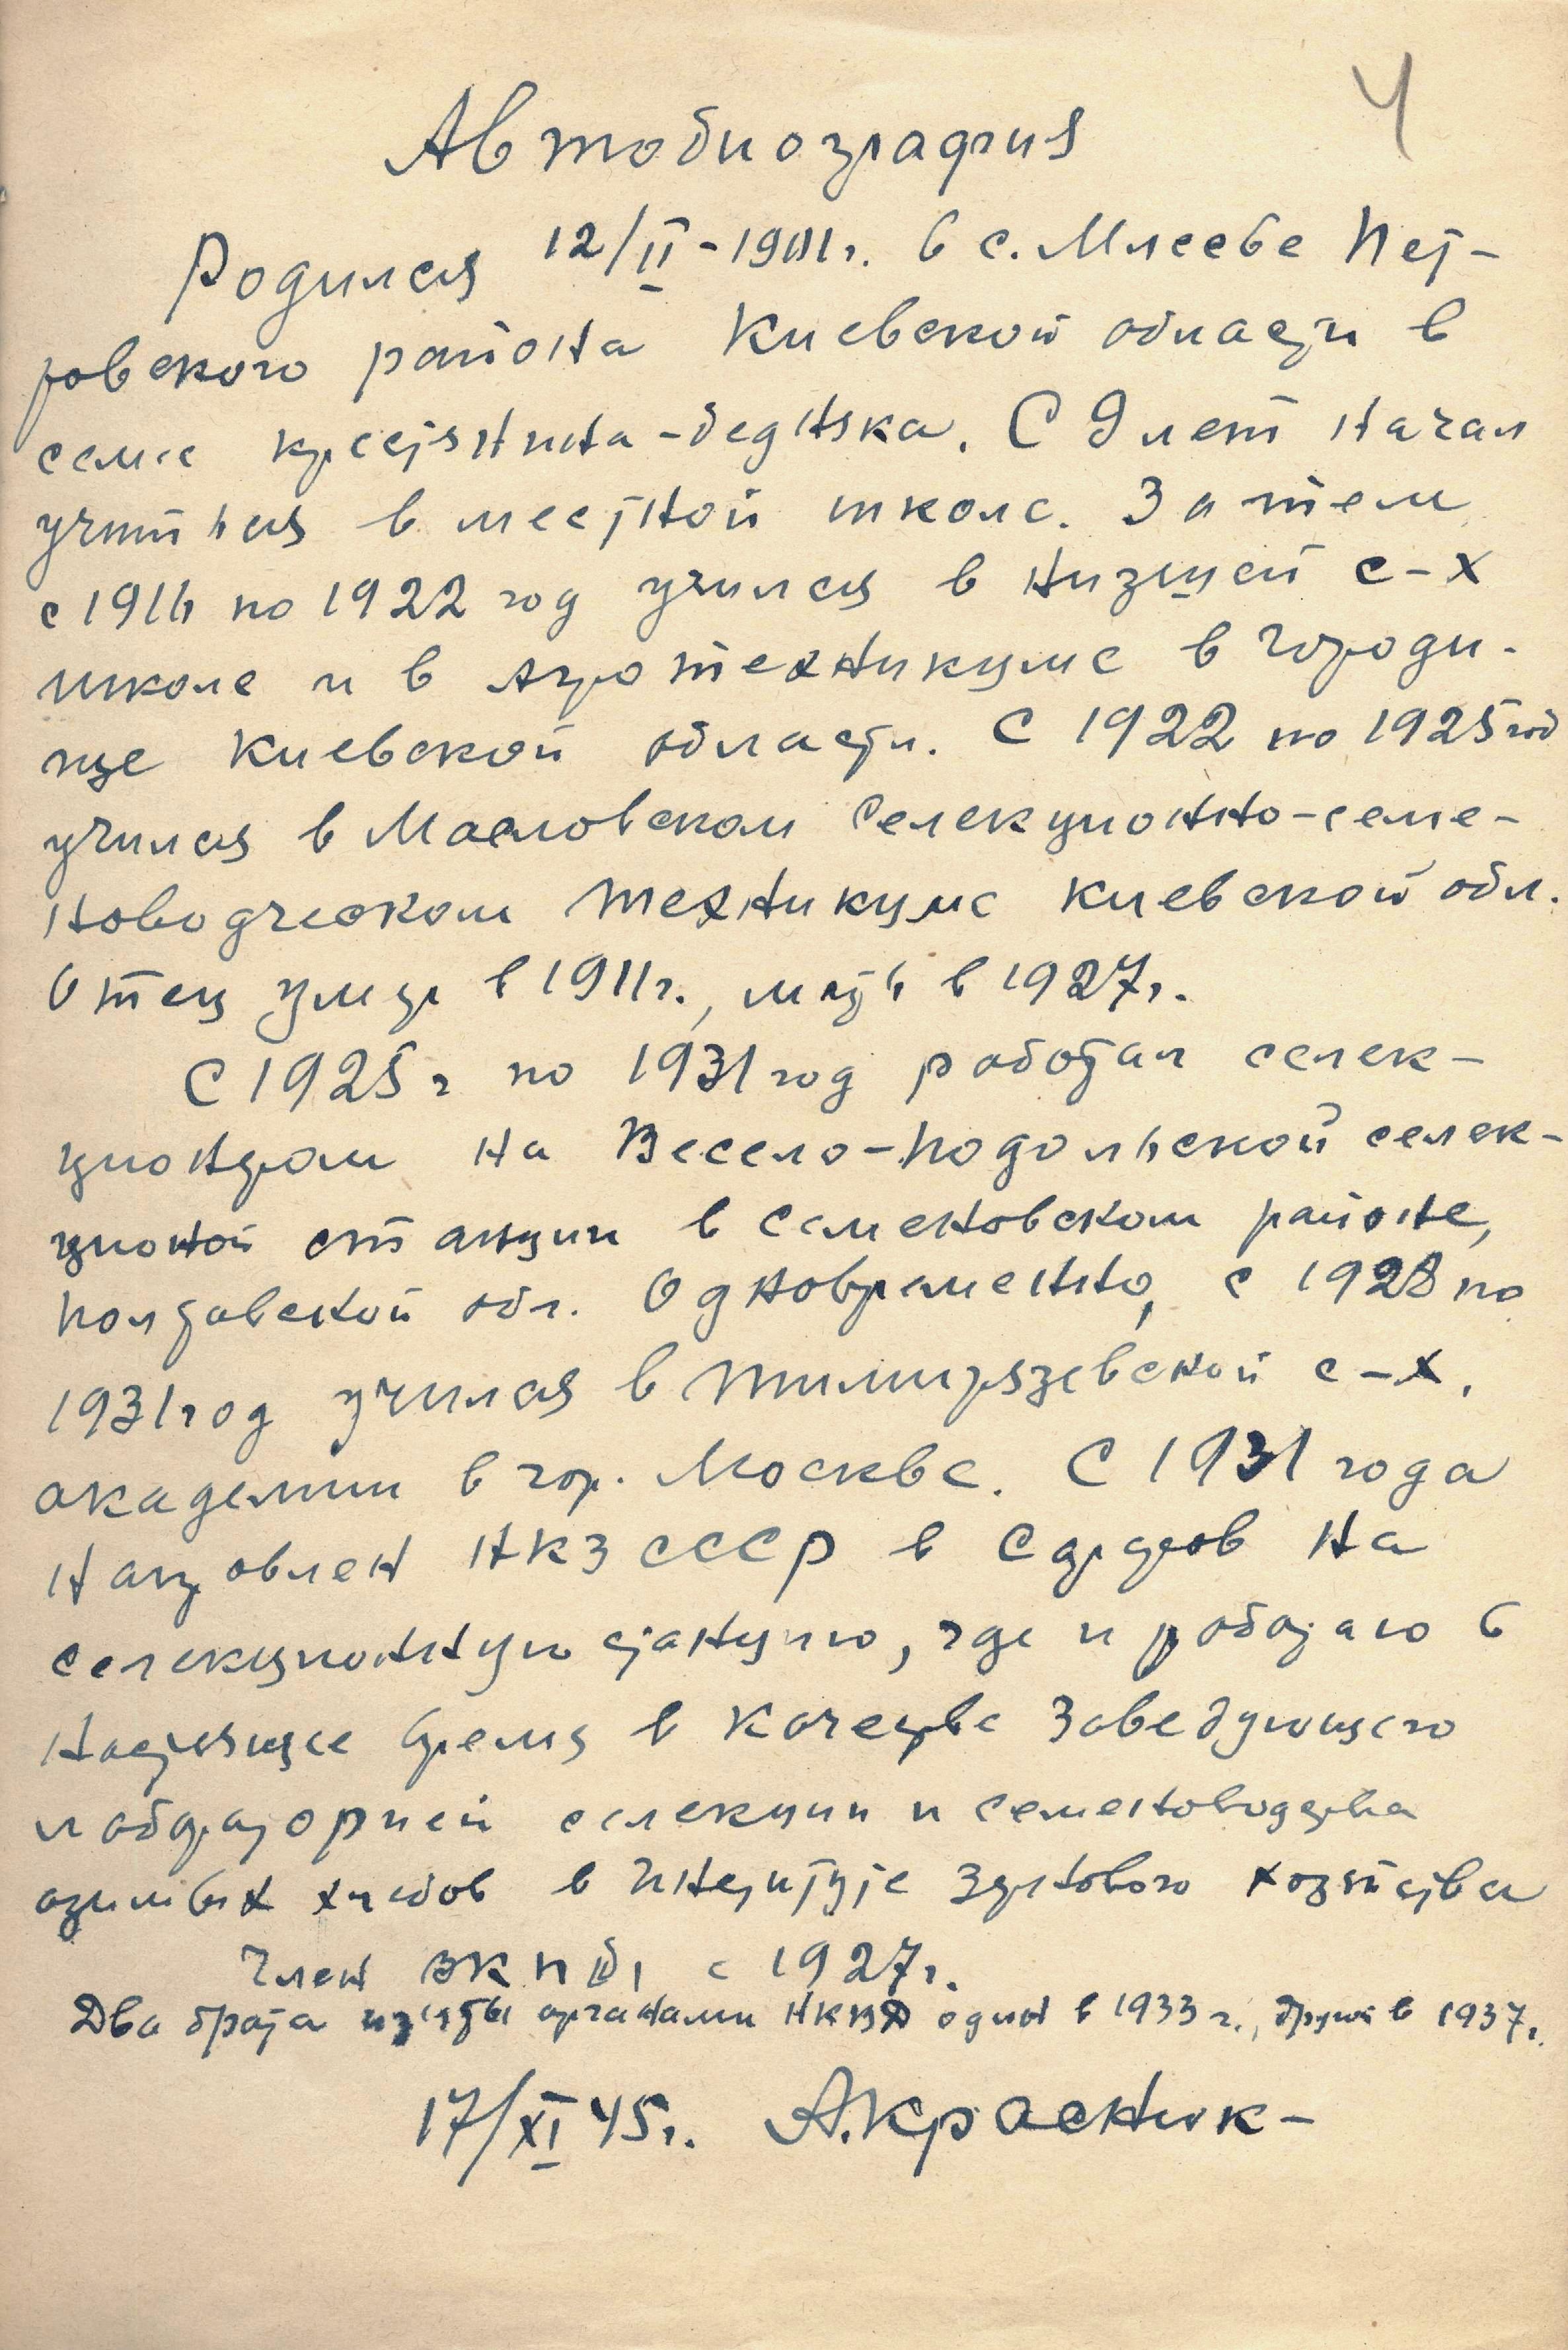 4
Автобиография
Родился 12/II-1901г. в с. Млееве Пет-
ровского района Киевской области в
семье крестьянина-бедняка. С 9 лет начал
учиться в местной школе. Затем
с 1916 по 1922 год учился в низшей с-х
школе и в агротехникуме в Городи-
ще Киевской области. С 1922 по 1925 год
учился в Масловском селекционно-семе-
новодческом техникуме Киевской обл.
Отец умер в 1911г., мать в 1927г.
С 1925г по 1931 год работал селек-
ционером на Весело-Подольской селек-
ционой станции в Семеновском районе,
Полтавской обл. Одновременно, с 1928 по
1931 год учился в Тимирязевской с-х.
академии в гор. Москве. С 1931 года
направлен НКЗ СССР в Саратов на
селекционную станцию, где и работаю в
настоящее время в качестве заведующего
лабораторией селекции и семеноводства
озимых хлебов в Институте зернового хозяйства
Член ВКП(б) с 1927г.
Два брата изъяты органами НКВД один в 1933 г., другой в 1937г.
17/XI 45г. А.Красник-